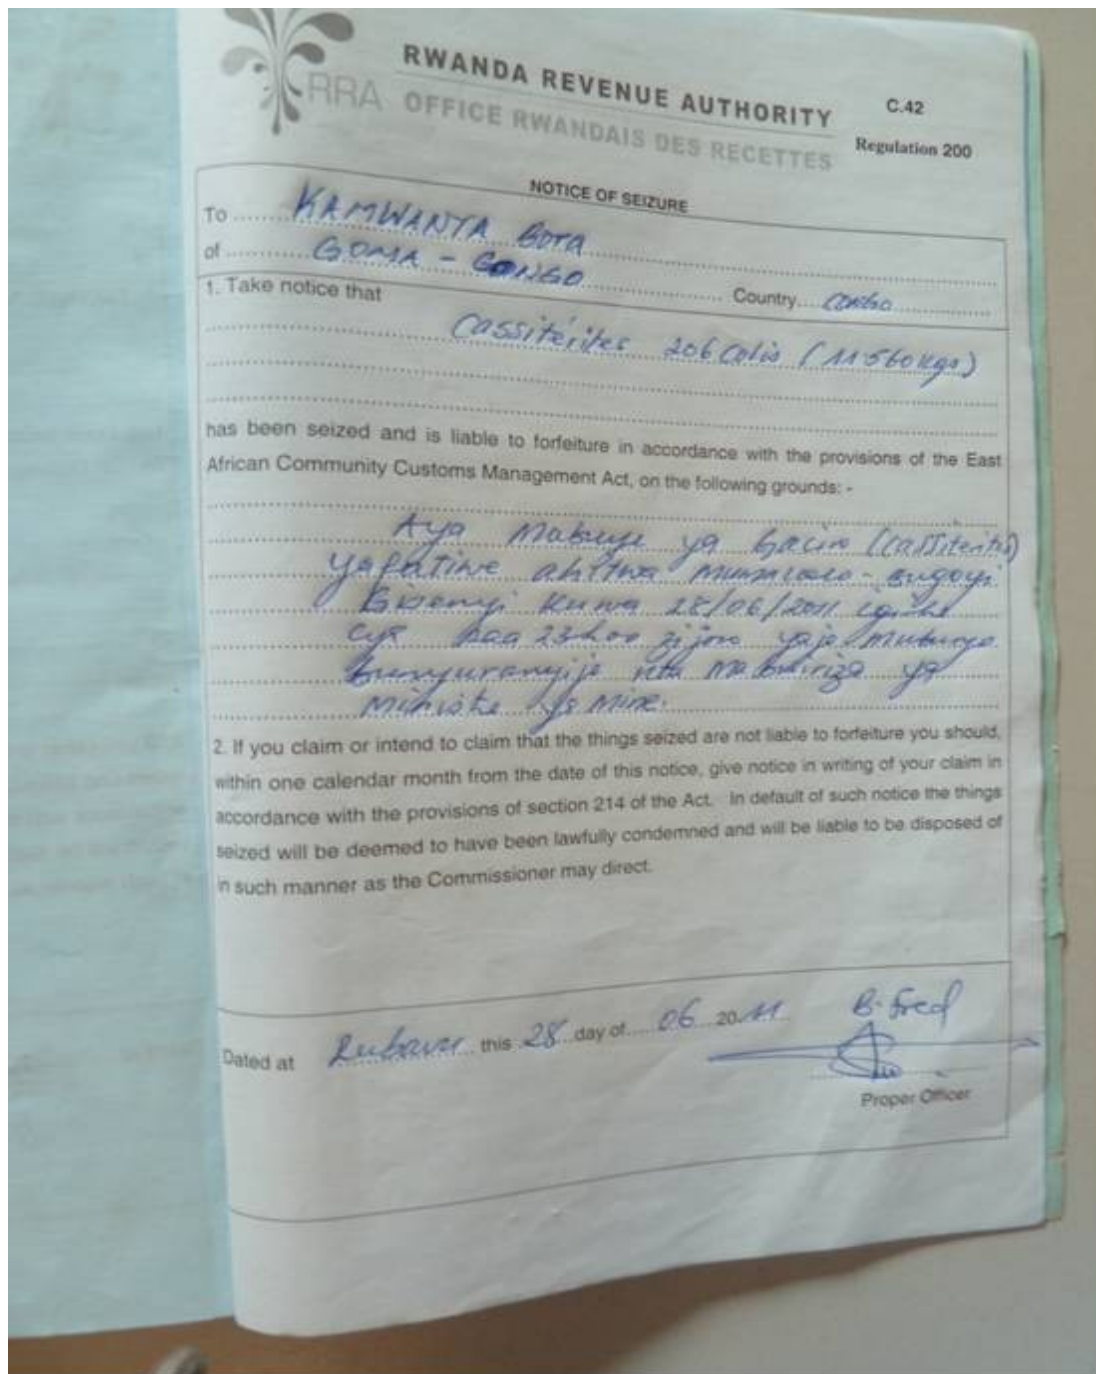 RRA
RWANDA REVENUE AUTHORITY
OFFICE RWANDAIS DES RECETTES
C.42
Regulation 200
NOTICE OF SEIZURE
To KAMWANYA
of GOMA - CONGO Country Congo
1. Take notice that
Cassitérites 206 Colis (11560 kgs)
has been seized and is liable to forfeiture in accordance with the provisions of the East
African Community Customs Management Act, on the following grounds: -
Aya Mabuye ya Gacin (Cassiteritis)
yafatiwe ahitwa
kuwa 28/06/2011
23h00 z'ijoro yaje muburyo
bunyuranyije n'amabwiriza ya
ya Mine.
2. If you claim or intend to claim that the things seized are not liable to forfeiture you should,
within one calendar month from the date of this notice, give notice in writing of your claim in
accordance with the provisions of section 214 of the Act. In default of such notice the things
seized will be deemed to have been lawfully condemned and will be liable to be disposed of
in such manner as the Commissioner may direct.
Dated at Rubavu this 28 day of 06 2011
B. Fred
Proper Officer